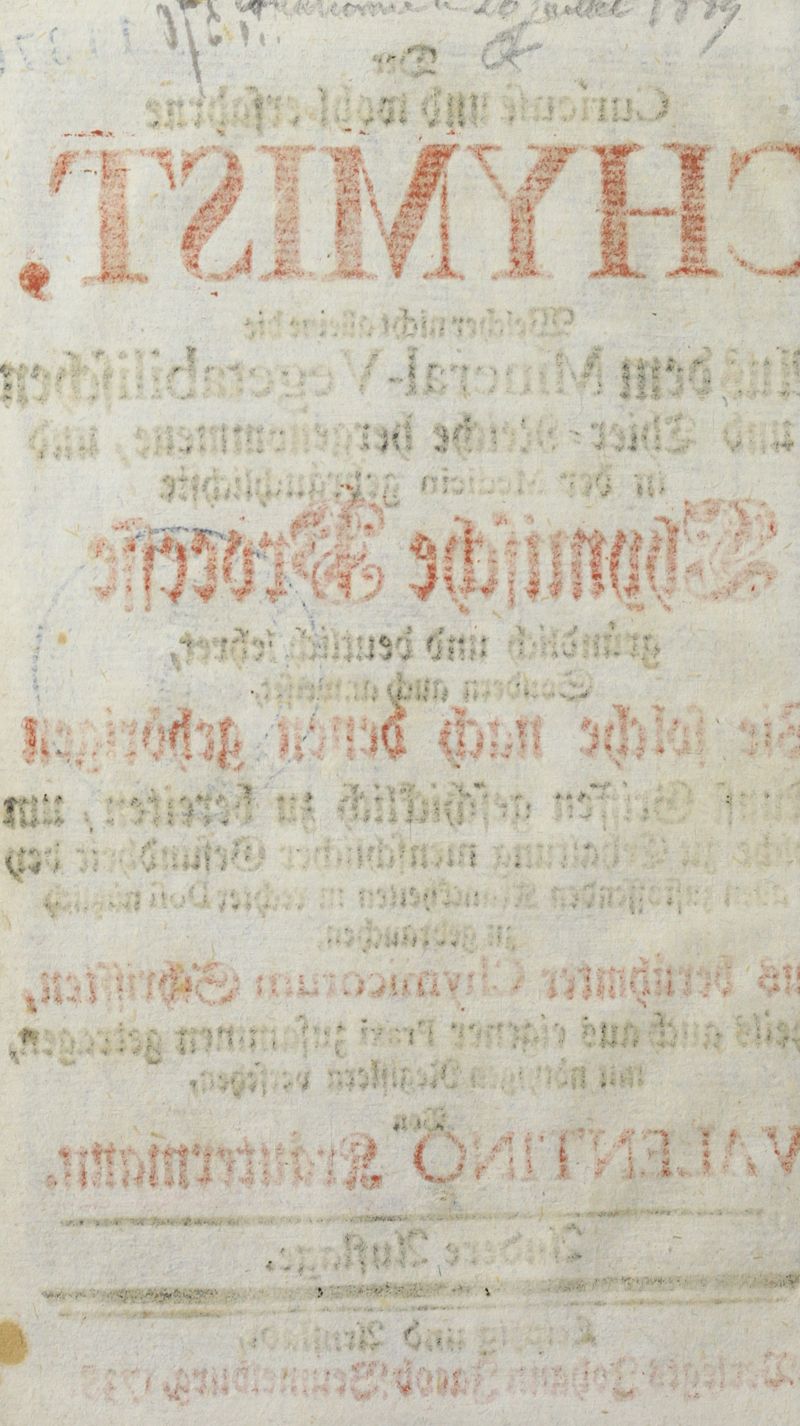 20 juillet 18
Der
Curieuse und wohl-erfahrne
CHYMIST,
Welcher nicht alleine die
Aus dem Mineral-Vegetabilischen
und Thier-Reiche hergenommene, und
in der Medicin gebräuchlichste
Chymische Processe
gründlich und deutlich lehret,
Sondern auch anweiset,
Wie solche nach denen gehörigen
Kunst-Griffen geschicklich zu bereiten,
zu Erhaltung menschlicher Gesundheit bey
allen zustossenden Kranckheiten in rechter Dosi nützlich
zu gebrauchen,
aus berühmter Chymicorum Schrifften,
theils auch aus eigener Praxi zusammen getragen,
mit nöthigen Registern versehen,
Von
VALENTINO Kräutermann.
Andere Auflage.
Leipzig und Arnstadt,
Verlegts Johann Jacob Beumelburg, 173